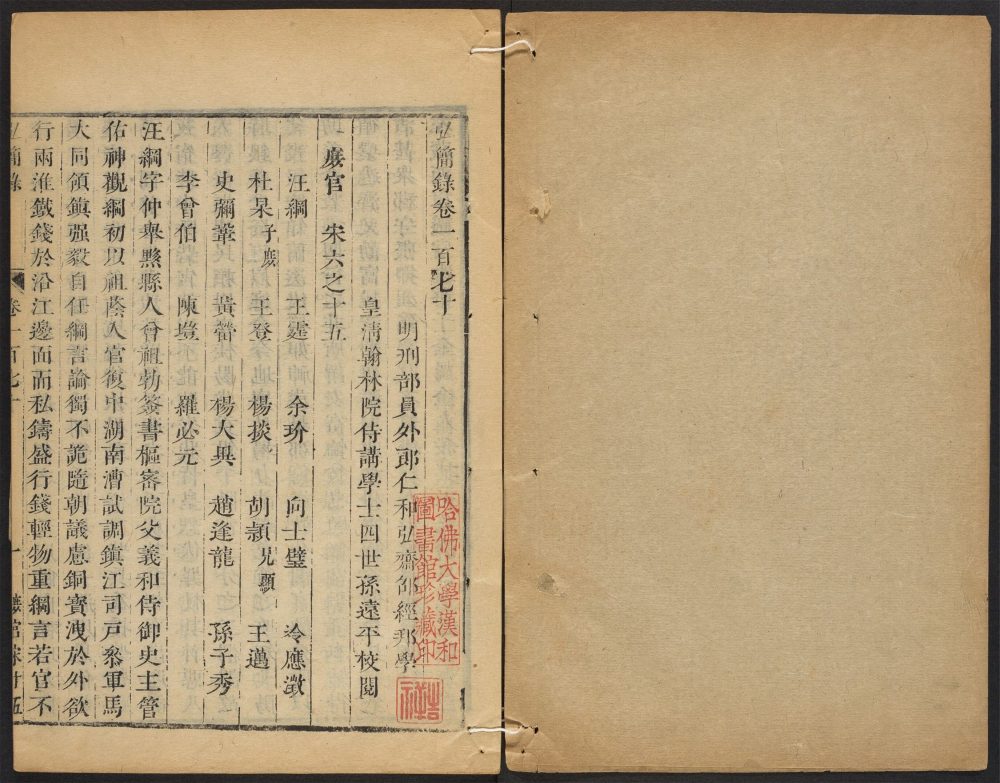 弘簡錄卷一百七十
明刑部員外郎仁和弘齋邵經邦學
皇淸翰林院侍講學士四世孫遠平校閱
庶官 宋六之十五
汪綱 王霆 余玠 向士璧 冷應澂
杜杲子庶 王登 楊掞 胡頴兄顯 王邁
史彌鞏 黃䇕 楊大異 趙逢龍 孫子秀
李曾伯 陳塏 羅必元
汪綱字仲舉黟縣人曾祖勃簽書樞密院父義和侍御史主管
佑神觀綱初以祖蔭入官復中湖南漕試調鎮江司戶叅軍馬
大同領鎮强毅自任綱言論獨不詭隨朝議慮銅寳洩於外欲
行兩淮鐵錢於沿江邊而而私鑄盛行錢輕物重綱言若官不
弘簡录
卷一百七十
一
庶官宋十五
哈佛大學漢和
圖書館珍藏印